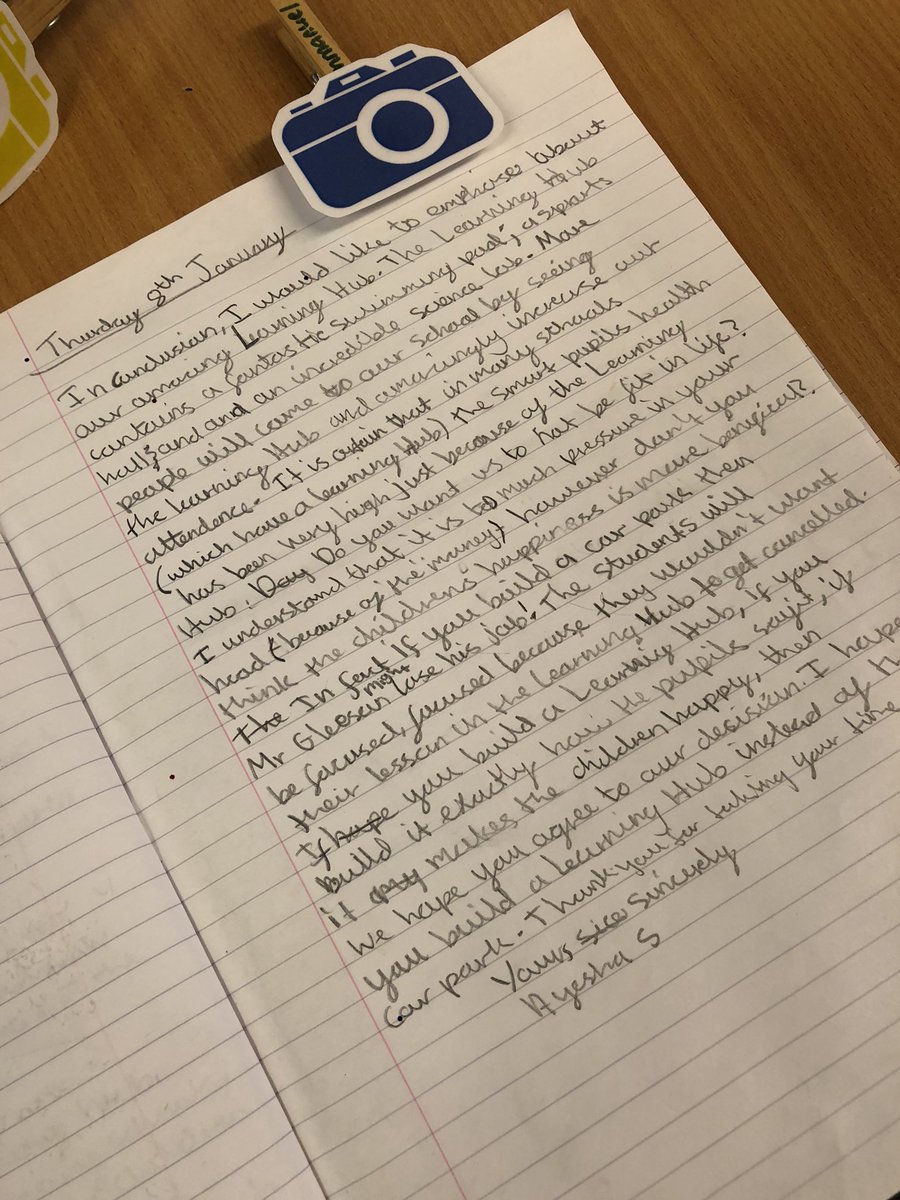 mmanuel
Thursday 9th January
In conclusion, I would like to emphises about
our amazing Learning Hub. The Learning Hub
contains a fantastic swimming pool, a sports
hall, and and an incredible science lab. More
people will come to our school by seeing
the learning Hub and amazingly increase our
attendence. It is certain that in many schools
(which have a learning Hub) the smart pupils health
has been very high just because of the Learning
Hub. Day Do you want us to not be fit in life?
I understand that it is to much pressure in your
head (because of the money) however don't you
think the childrens happiness is more benefical?
the In fact If you build a car park then
Mr Gleesan might lose his job! The students will
be focused, focused because they wouldn't want
their lesson in the Learning Hub to get cancelled.
I hope you build a Learning Hub, if you
build it exactly how the pupils says, if
it makes the children happy, then
We hope you agree to our decision. I hope
you build a learning Hub instead of the
car park. Thank you for taking your time
Yours sice sincerely
Ayesha S